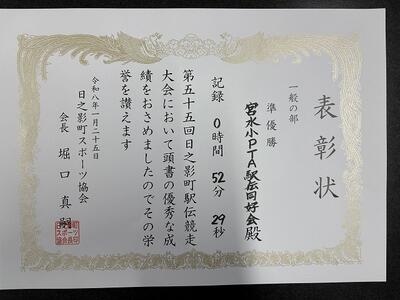 表彰状
一般の部
準優勝
宮水小PTA駅伝同好会殿
記録 0時間 52分 29秒
第五十五回日之影町駅伝競走
大会において頭書の優秀な成
績をおさめましたのでその栄
誉を讃えます
令和八年一月二十五日
日之影町スポーツ協会
会長 堀口真嗣